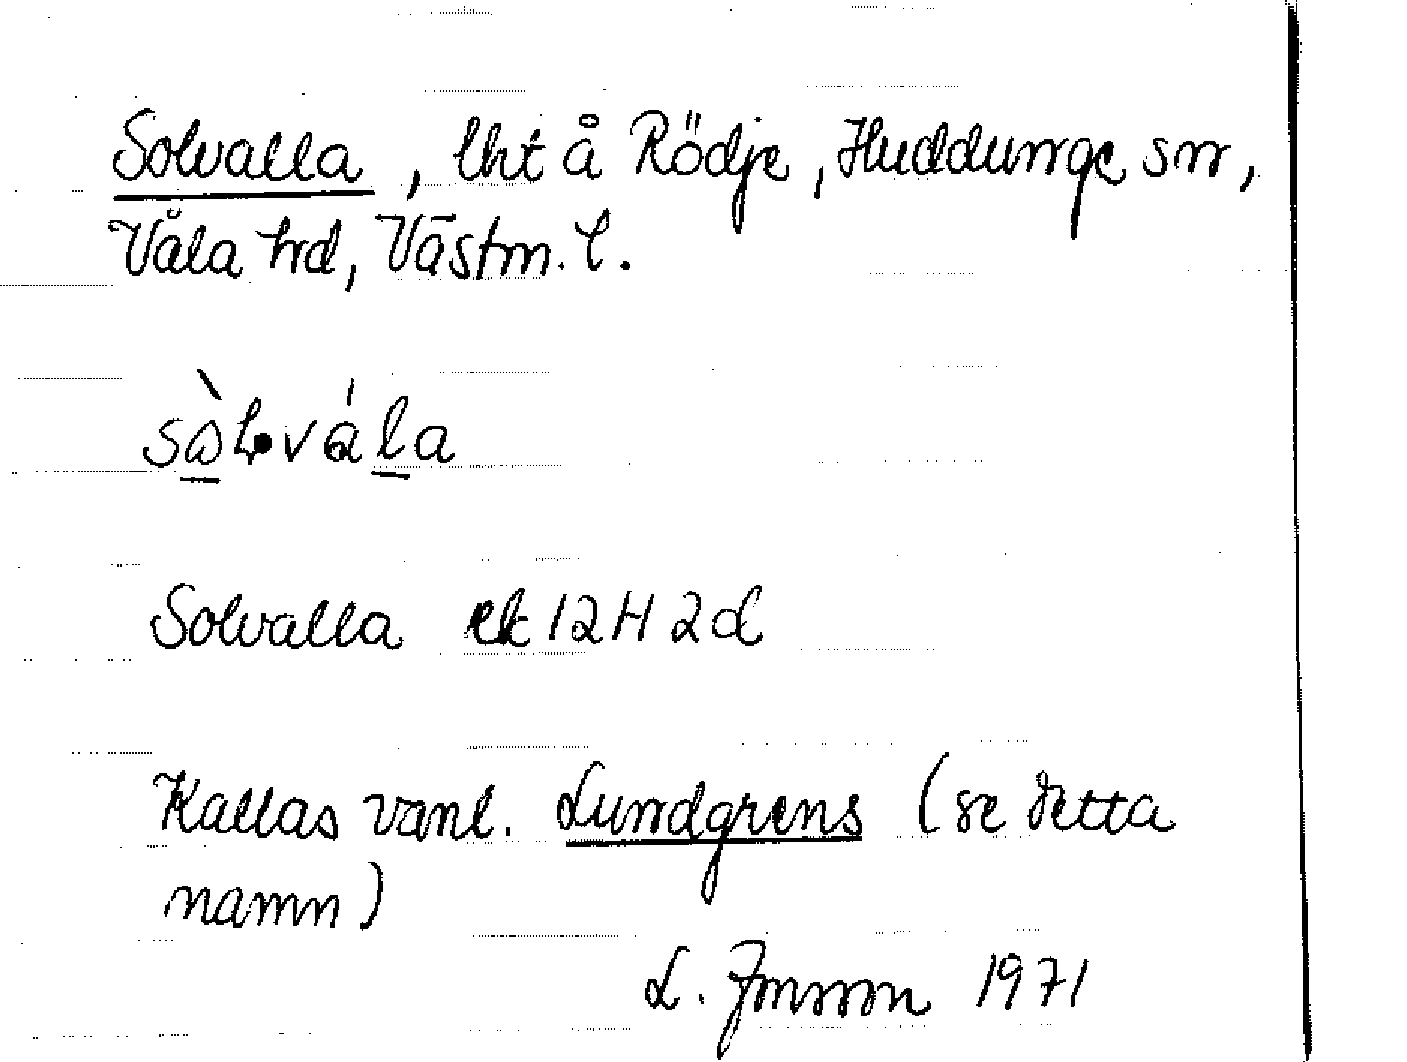 Solvalla, lht å Rödje, Huddunge sn,
Våla hd, Västm. l.
Solvalla ek 12H 2d
Kallas vanl. Lundgrens (se detta
namn)
L. Jonsson 1971